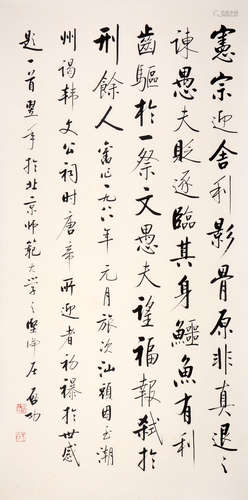 憲宗迎舍利影骨原非真退之
諫愚夫貶逐臨其身鱷魚有利
齒驅於一祭文愚夫望福報弒於
刑餘人 舊作一九八六年元月旅次汕頭因至潮
州謁韓文公祠时唐帝所迎者初襮於世感
題一首翌年於北京師範大学之堅淨居 啟功